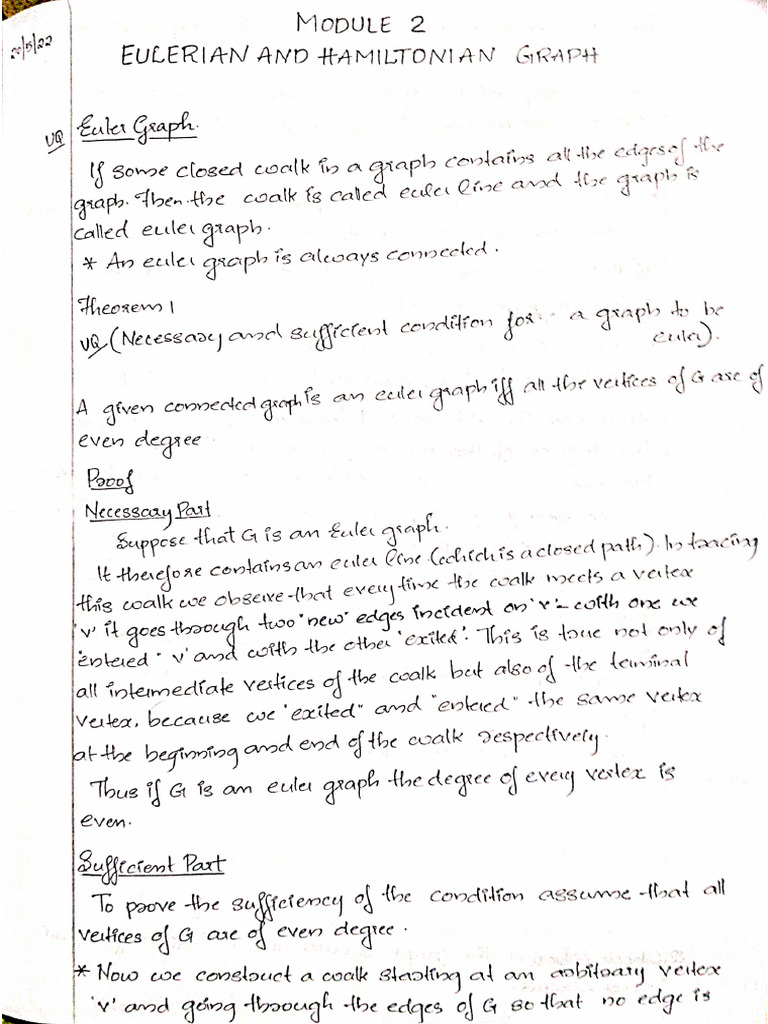 MODULE 2
20/5/22
EULERIAN AND HAMILTONIAN GRAPH
UQ Euler Graph.
If some closed walk in a graph contains all the edges of the
graph. Then the walk is called euler line and the graph is
called euler graph.
* An euler graph is always connected.
Theorem 1
UQ (Necessary and sufficient condition for a graph to be
euler).
A given connected graph is an euler graph iff all the vertices of G are of
even degree
Proof
Necessary Part
Suppose that G is an Euler graph.
It therefore contains an euler line (which is a closed path). In tracing
this walk we observe that every time the walk meets a vertex
'v' it goes through two "new" edges incident on 'v' - with one we
"entered" v' and with the other 'exited'. This is true not only of
all intermediate vertices of the walk but also of the terminal
vertex, because we "exited" and "entered" the same vertex
at the beginning and end of the walk respectively.
Thus if G is an euler graph the degree of every vertex is
even.
Sufficient Part
To prove the sufficiency of the condition assume that all
vertices of G are of even degree.
* Now we construct a walk starting at an arbitrary vertex
'v' and going through the edges of G so that no edge is